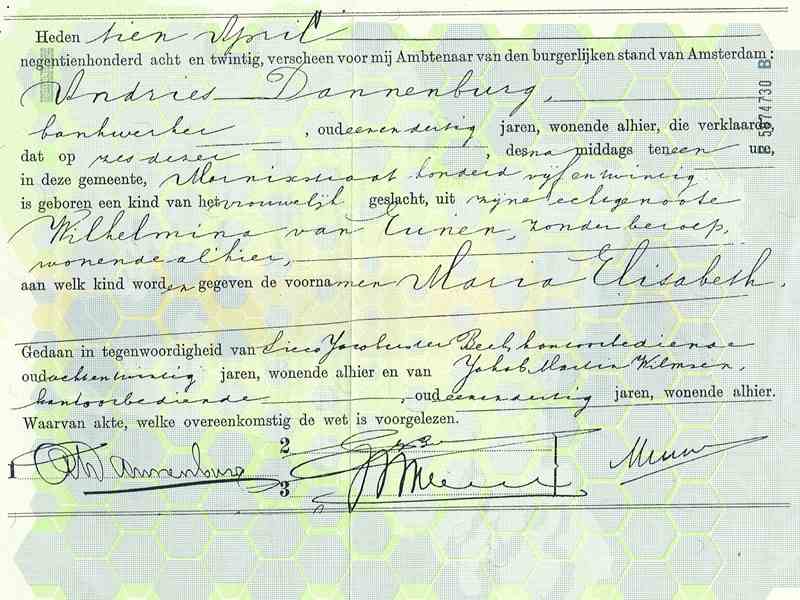 Heden tien April
negentienhonderd acht en twintig, verscheen voor mij Ambtenaar van den burgerlijken stand van Amsterdam :
Andries Dannenburg,
bankwerker , oud eenendertig jaren, wonende alhier, die verklaarde
dat op zes dezer , des na middags ten een ure,
in deze gemeente, Marnixstraat honderd vijfentwintig
is geboren een kind van het vrouwelijk geslacht, uit zijne echtgenoote
Wilhelmina van Eunen, zonder beroep,
wonende alhier,
aan welk kind worden gegeven de voornamen Maria Elisabeth.
Gedaan in tegenwoordigheid van Beek, kantoorbediende
oud achtentwintig jaren, wonende alhier en van Jakob Martin Wilmsen,
kantoorbediende , oud eenendertig jaren, wonende alhier.
Waarvan akte, welke overeenkomstig de wet is voorgelezen.
1 Dannenburg 2
3
B